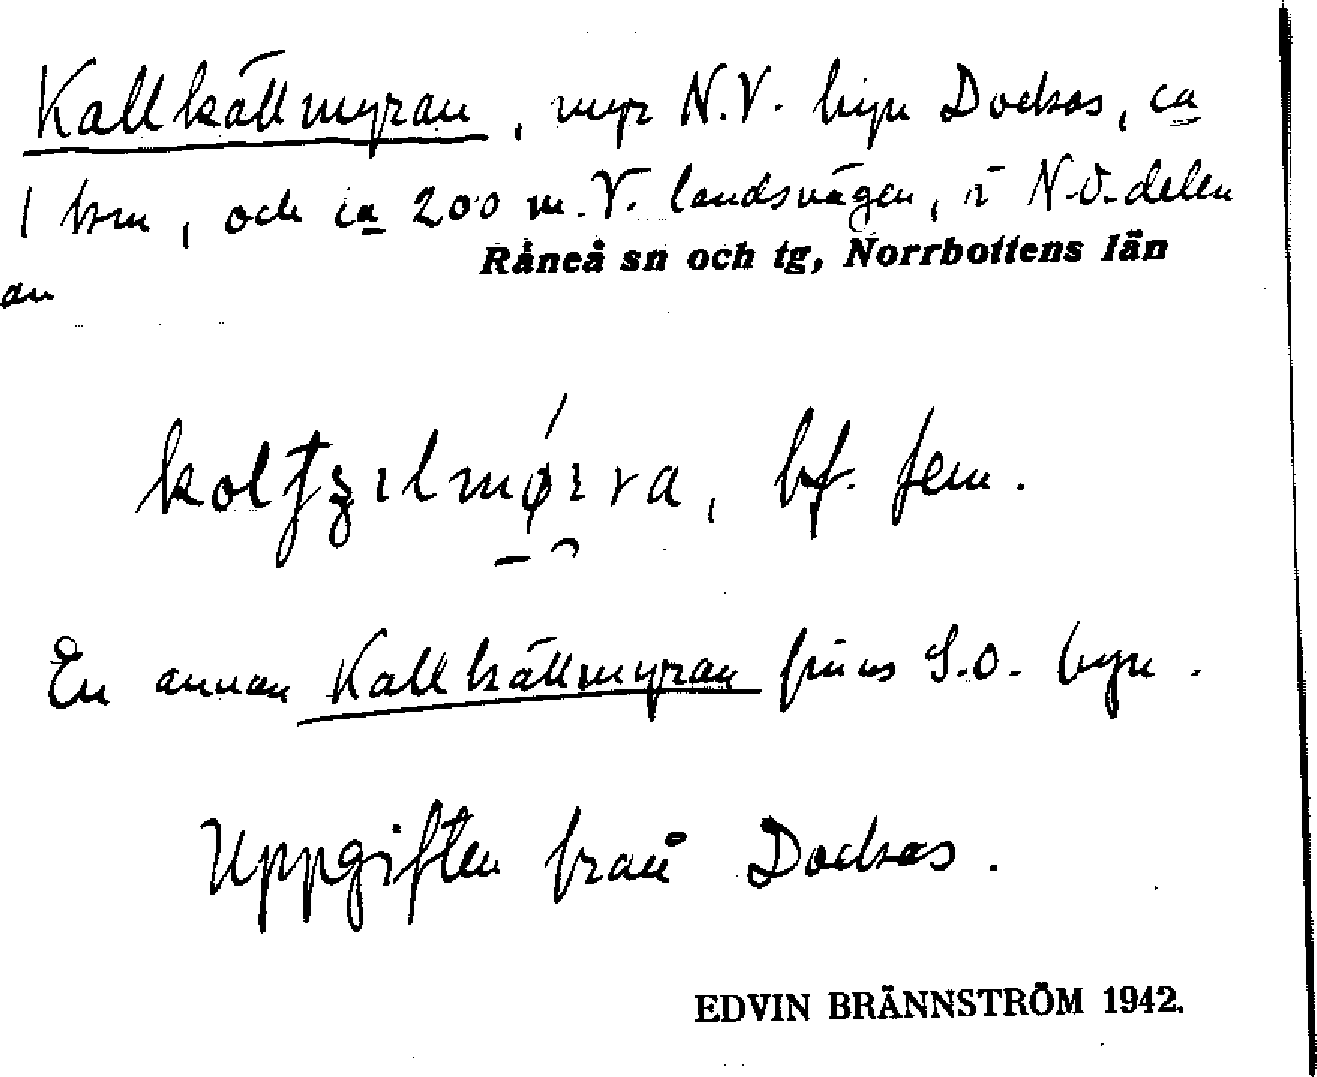 Kallkällmyran, myr N.V. byn Dockas, ca
1 km, och ca 200 m. V. landsvägen, i N.V. delen
Råneå sn och tg, Norrbottens län
av
bf. fem.
En annan Kallkällmyran finns S.O. byn.
Uppgiften från Dockas.
EDVIN BRÄNNSTRÖM 1942.